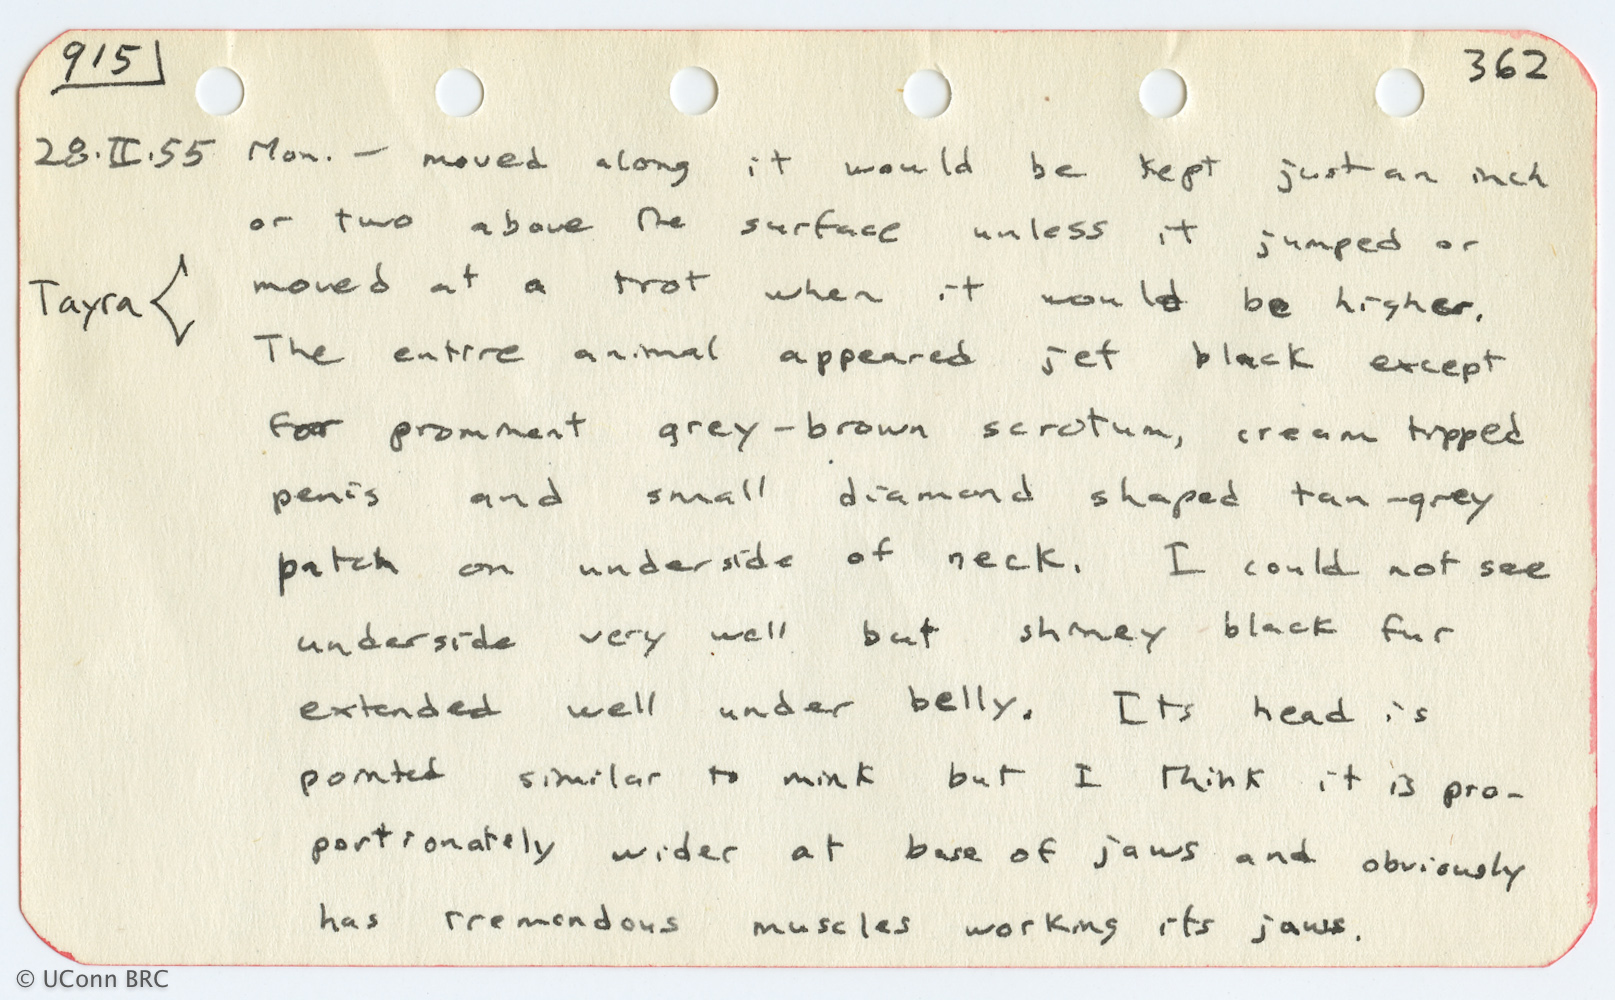 915
362
28.II.55 Mon. — moved along it would be kept just an inch
or two above the surface unless it jumped or
Tayra moved at a trot when it would be higher.
The entire animal appeared jet black except
for prominent grey-brown scrotum, cream tipped
penis and small diamond shaped tan-grey
patch on underside of neck. I could not see
underside very well but shiney black fur
extended well under belly. Its head is
pointed similar to mink but I think it is pro-
portionately wider at base of jaws and obviously
has tremendous muscles working its jaws.
© UConn BRC